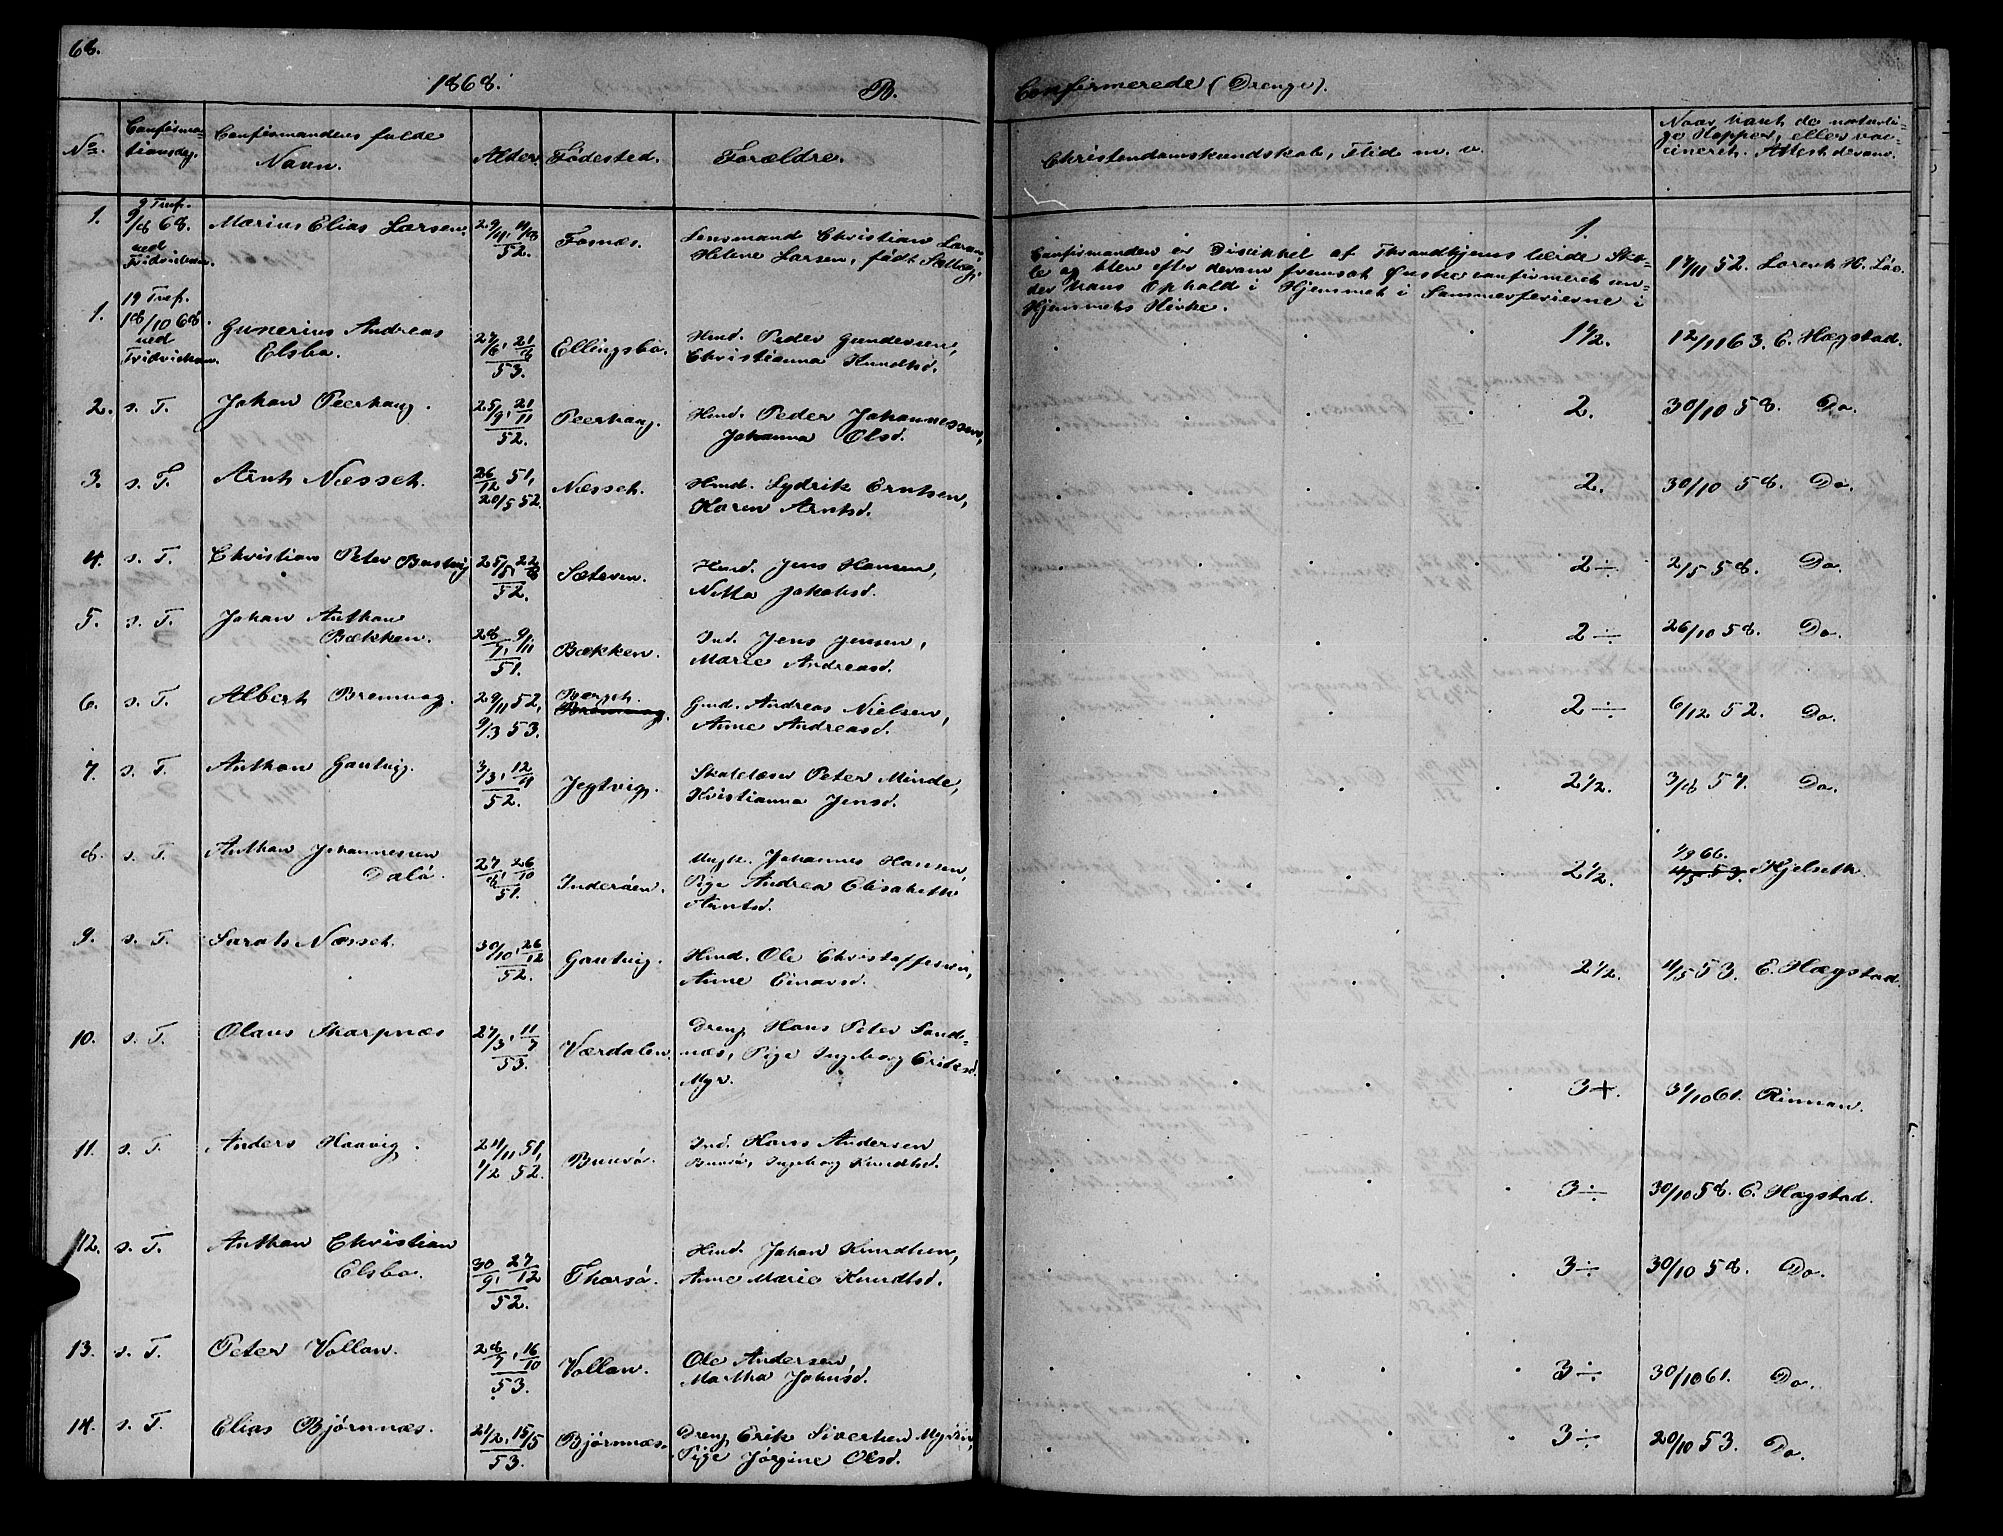 68.
1868.
B.
Confirmerede (Drenge).
No. Confirmationsdag. Confirmandens fulde Navn. Alder. Fødested. Forældre. Christendomskundskab, Flid m. v. Naar havt de naturlige Kopper, eller vaccineret. Attest derom.
1. 9 Tref. 9/8 68. ved Fridrichson. Marius Elias Larsen. 29/4, 52. Fosnæs. Lensmand Christian Larsen
Helene Larsen, født 1. 17/11 52. Lorents H.
Confirmanden er Disippel af Throndhjems lærde Sko-
le og blev efter derom fremsat Ønske confirmeret un-
der hans Ophold i Hjemmet i Sommerferierne i
Hjemmets Kirke.
1. 19 Tref. 18/10 68. ved Fridrichson. Gunerius Andreas
Elsbo. 27/6, 21/8 53. Ellingsbo. Hmd. Peder Gundersen,
Christianna Knudtsd. 1 1/2. 12/11 63. E. Hægstad.
2. s. T. Johan Peerhaug. 25/9, 21/11 52. Peerhaug. Hmd. Peder Johannessen,
Johanna Olsd. 2. 30/10 58. Do.
3. s. T. Arnt Næsset. 26/12 51, 20/5 52. Næsset. Hmd. Lydrik Erntsen,
Karen Arntsd. 2. 30/10 58. Do.
4. s. T. Christian Peter Botvig 25/5, 22/8 52. Sæteren. Hmd. Jens Hansen,
Nilla Jakobsd. 2 ÷ 2/5 58. Do.
5. s. T. Johan Anthon
Bækken. 28/7, 9/11 51. Bækken. Ind. Jens Jensen,
Marie Andreasd. 2 ÷ 26/10 58. Do.
6. s. T. Albert Bremvag. 29/11 52, 9/3 53. Berget. Bremvag. Gmd. Andreas Nielsen,
Anne Andreasd. 2 ÷ 6/12 52. Do.
7. s. T. Anthon Gautvig. 3/3, 12/4 52. Jegtvig. Skolelærer Peter Minde,
Kristianna Jensd. 2 1/2. 3/8 57. Do.
8. s. T. Anthon Johannessen
Dalø. 27/8, 26/10 51. Inderøen. Ungk. Johannes Hansen,
Pige Andrea Elisabeth
Arntsd. 2 1/2. 1/9 66. 11/5 53. Kjelseth.
9. s. T. Sarak Næsset. 30/10, 26/12 52. Gautvig. Hmd. Ole Christoffersen,
Anne Einarsd. 2 1/2. 11/5 53. E. Hægstad.
10. s. T. Olaus Skarpnæs 27/3, 11/7 53. Værdalen. Dreng Hans Peter Sand-
næs, Pige Ingeborg Eriksd.
Myr. 3 +. 31/10 61. Rinnan.
11. s. T. Anders Haavig. 24/11 51, 1/2 52. Buurø. Ind. Hans Andersen
Buurø, Ingeborg Knudtsd. 3 ÷ 30/10 58. E. Hægstad.
12. s. T. Anthon Christian
Elsbo. 30/9, 27/12 52. Thorsø. Hmd. Johan Knudtsen,
Anne Marie Knudtsd. 3 ÷ 30/10 58. Do.
13. s. T. Peter Vollan. 28/7, 16/10 53. Vollan. Ole Andersen
Martha Johnsd. 3 ÷ 30/10 61. Do.
14. s. T. Elias Bjørnnæs. 21/2, 15/5 53. Bjørnnæs. Dreng Erik Sivertsen
Pige Jørgine Olsd. 3 ÷ 20/10 53. Do.